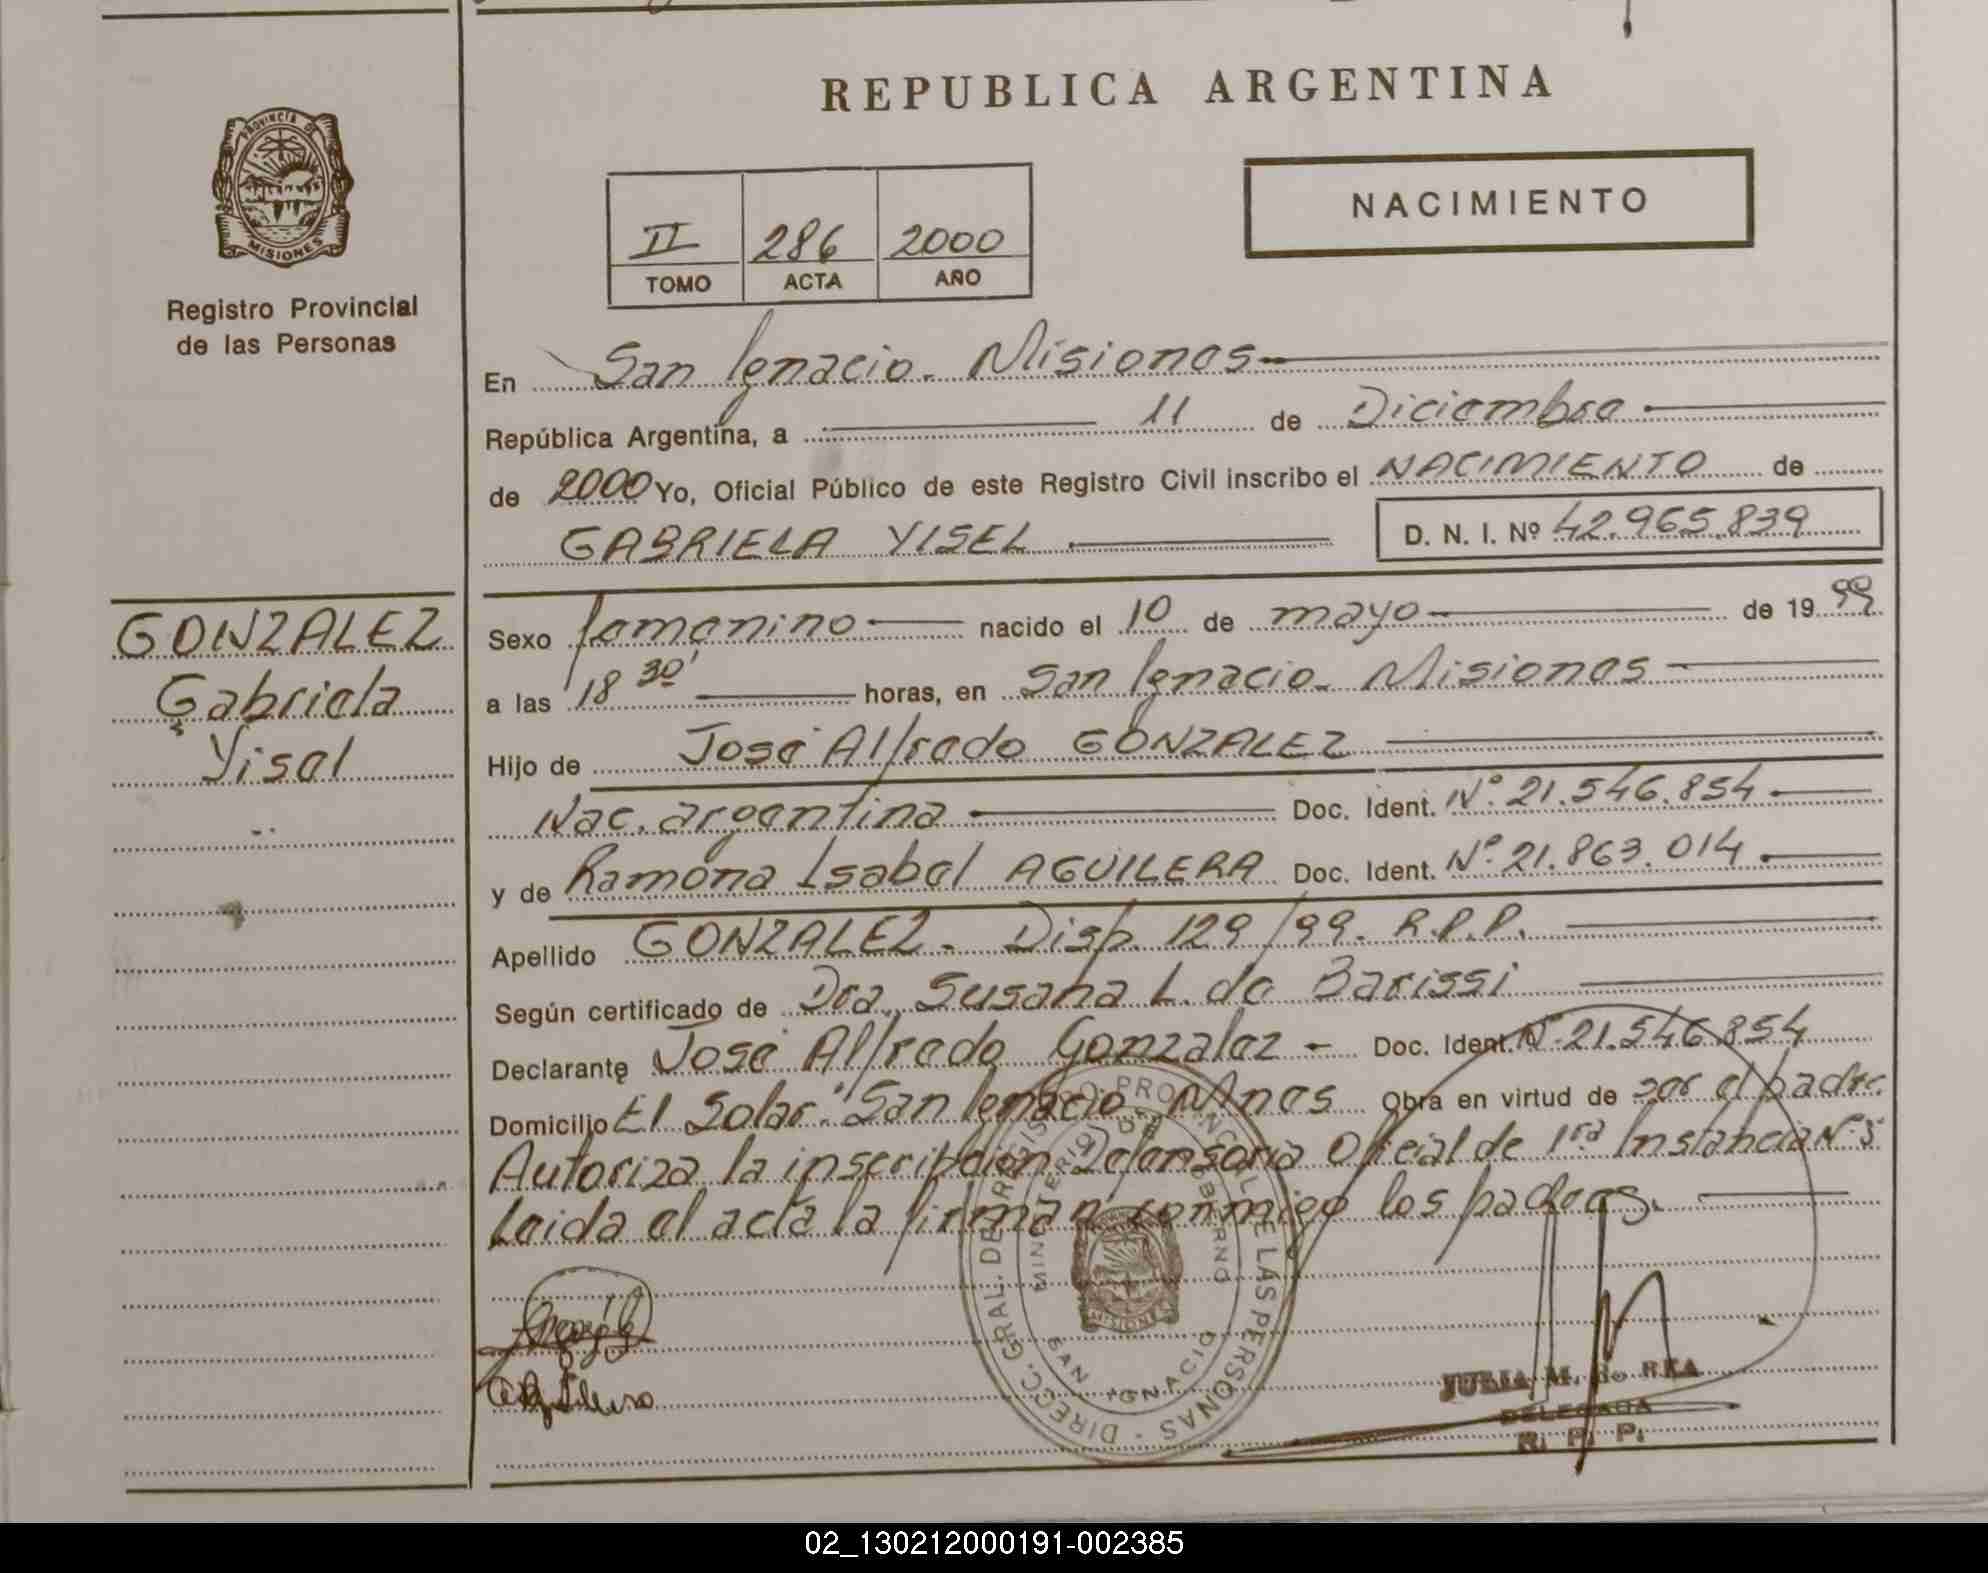 REPUBLICA ARGENTINA
NACIMIENTO
PROVINCIA DE
MISIONES
Registro Provincial
de las Personas
II 286 2000
TOMO ACTA AÑO
En San Ignacio - Misiones
República Argentina, a 11 de Diciembre
de 2000 Yo, Oficial Público de este Registro Civil inscribo el NACIMIENTO de
GABRIELA YISEL D. N. I. Nº 42.965.839
GONZALEZ
Gabriela
Yisel
Sexo femenino nacido el 10 de mayo de 1999
a las 18 30' horas, en San Ignacio - Misiones
Hijo de José Alfredo GONZALEZ
Nac. argentina Doc. Ident. Nº 21.546.854
y de Ramona Isabel AGUILERA Doc. Ident. Nº 21.863.014
Apellido GONZALEZ - Disp. 129/99. R.P.P.
Según certificado de Dra. Susana L. de Barissi
Declarante José Alfredo Gonzalez - Doc. Ident. Nº 21.546.854
Domicilio El Solar. San Ignacio Mnes Obra en virtud de ser el padre.
Autoriza la inscripción Defensoria Oficial de 1ra Instancia Nº 5
Leida el acta la firman conmigo los padres.
DIRECC. GRAL. DE REGISTRO PROVINCIAL DE LAS PERSONAS -
MINISTERIO DE GOBIERNO
MISIONES
SAN IGNACIO
JULIA M. de REA
DELEGADA
R. P. P.
02_130212000191-002385